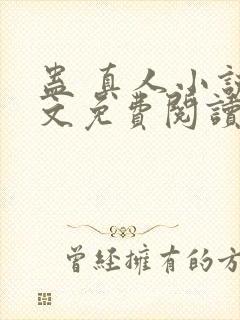 蛊真人小說
文免費閱讀
曾經擁有的方